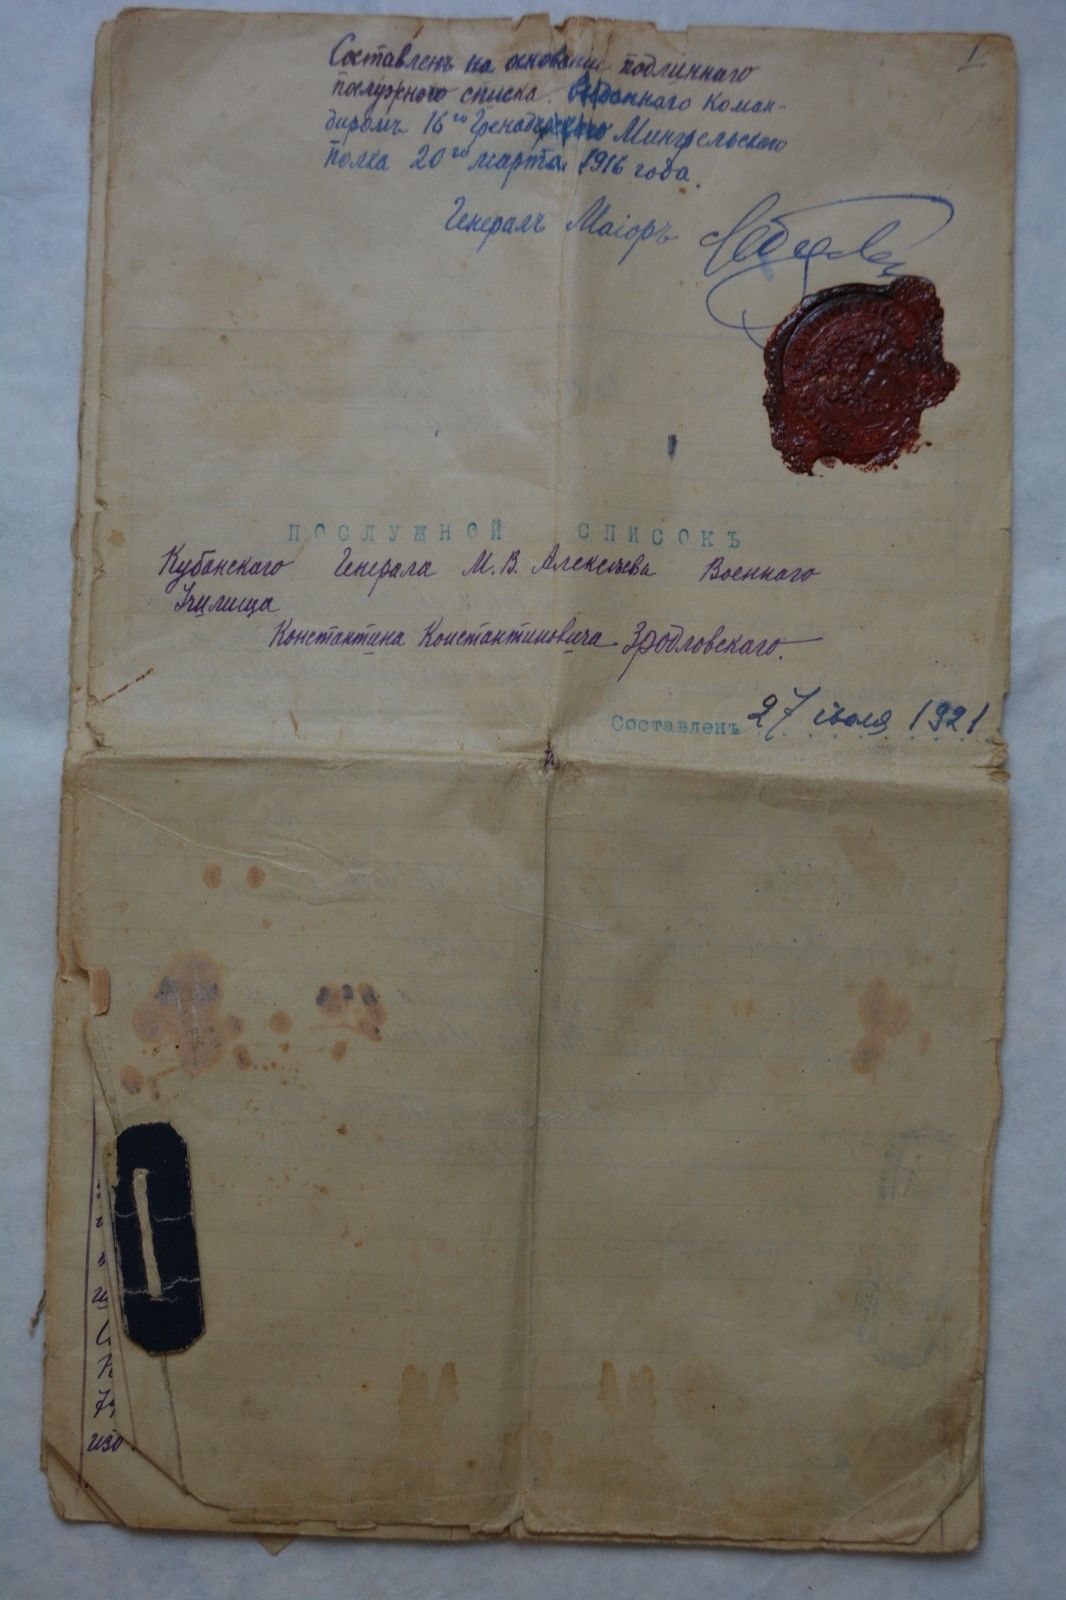 1
Составленъ на основанiи подлиннаго
послужного списка выданнаго Коман-
диромъ 16го Гренадерскаго Мингрельскаго
полка 20го марта 1916 года.
Генералъ Маiоръ
ПОСЛУЖНОЙ СПИСОКЪ
Кубанскаго Генерала М. В. Алексѣева Военнаго
Училища
Константина Константиновича Зродловскаго.
Составленъ 27 iюля 1921